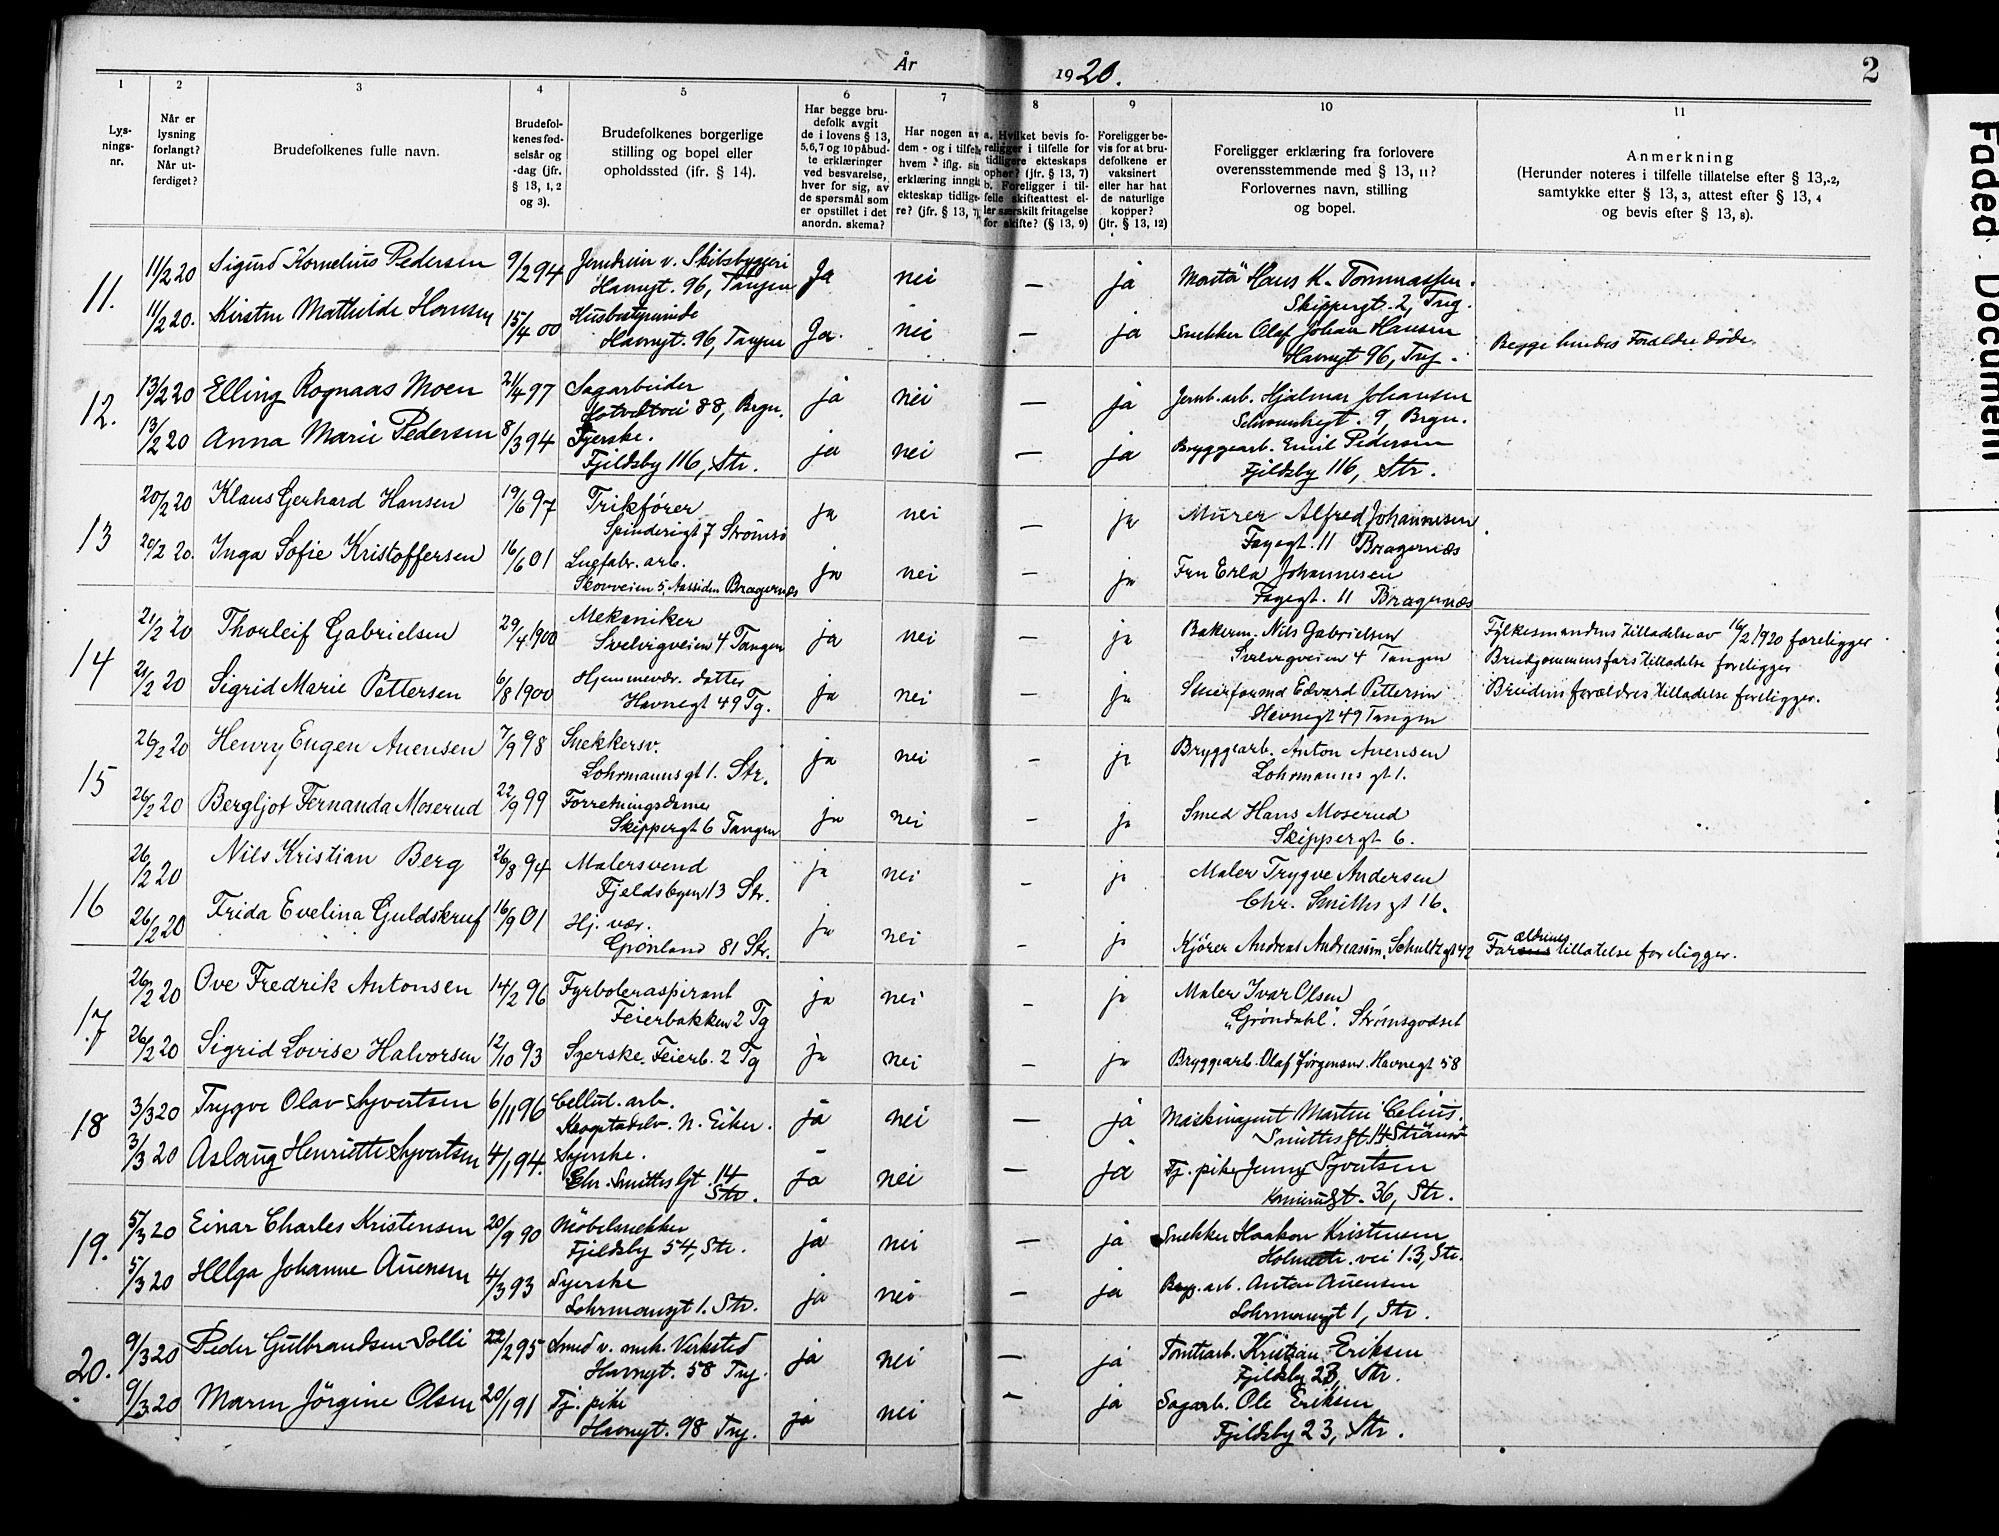 År 1920.
2
1
2
3
4
5
6
7
8
9
10
11
Lys-
nings-
nr.
Når er
lysning
forlangt?
Når ut-
ferdiget?
Brudefolkenes fulle navn.
Brudefol-
kenes fød-
selsår og
-dag (jfr.
§ 13, 1, 2
og 3).
Brudefolkenes borgerlige
stilling og bopel eller
opholdssted (ifr. § 14).
Har begge bru-
defolk avgit
de i lovens § 13,
5, 6, 7 og 10 påbud-
te erklæringer
ved besvarelse,
hver for sig, av
de spørsmål som
er opstillet i det
anordn. skema?
Har nogen av
dem - og i tilfelle
hvem - iflg. sin
erklæring inngått
ekteskap tidlige-
re? (jfr. § 13, 7)
a. Hvilket bevis fo-
religger i tilfelle for
tidligere ekteskaps
ophør? (jfr. § 13, 7)
b. Foreligger i til-
felle skifteattest el-
ler særskilt fritagelse
for skifte? (§ 13, 9)
Foreligger be-
vis for at bru-
defolkene er
vaksinert
eller har hat
de naturlige
kopper?
(jfr. § 13, 12)
Foreligger erklæring fra forlovere
overensstemmende med § 13, 11?
Forlovernes navn, stilling
og bopel.
Anmerkning
(Herunder noteres i tilfelle tillatelse efter § 13, 2,
samtykke efter § 13, 3, attest efter § 13, 4
og bevis efter § 13, 8).
11.
11/2 20 Sigurd Kornelius Pedersen 9/2 94 Jerndreier v. Skibsbyggeri Ja nei — ja Montør Hans K. Tommassen.
Havnegt. 96, Tangen Skippergt. 2, Tng.
11/2 20. Kirstin Mathilde Hansen 15/4 00 Husbestyrerinde Ja. nei — ja Snekker Olaf Johan Hansen Begge hendes Forældre døde.
Havnegt. 96, Tangen Havnegt 96, Tng.
12.
13/2 20 Elling Rognaas Moen 21/4 97 Sagarbeider ja nei — ja Jernb. arb. Hjalmar Johansen
Hotvedtvei 88, Brgn. gt. 9, Brgn.
13/2 20 Anna Marie Pedersen 8/3 94 Syerske. ja nei — ja Bryggearb. Emil Pedersen
Fjeldsby 116, Str. Fjeldsby 116, Str.
13
20/2 20 Klaus Gerhard Hansen 19/6 97 Trikfører ja nei — ja Murer Alfred Johannesen
Spinderigt 7 Strømsø Fayegt. 11 Bragernæs
20/2 20. Inga Sofie Kristoffersen 16/6 01 Luefabr. arb. ja nei — ja Fru Erla Johannesen
Skovveien 5, Aassiden Bragernæs Fayegt. 11 Bragernæs
14
21/2 20 Thorleif Gabrielsen 29/4 1900 Mekaniker ja nei — ja Bakerm. Nils Gabrielsen Fylkesmandens tilladelse av 16/2 1920 foreligger
Svelvigveien 4 Tangen Svelvigveien 4 Tangen Brudgommens fars tilladelse foreligger
21/2 20 Sigrid Marie Pettersen 6/8 1900 Hjemmevær. datter ja nei — ja Edvard Pettersen Brudens forældres tilladelse foreligger.
Havnegt 49 Tg. Havnegt 49 Tangen
15
26/2 20 Henry Eugen Auensen 7/9 98 Snekkersv. ja nei — ja Bryggearb. Anton Auensen
Lohrmanns gt 1. Str. Lohrmanns gt 1.
26/2 20 Bergljot Fernanda Moserud 22/9 99 Forretningsdame ja nei — ja Smed Hans Moserud
Skippergt 6 Tangen Skippergt 6.
16
26/2 20 Nils Kristian Berg 26/8 94 Malersvend ja nei — ja Maler Trygve Andersen
Fjeldsbyen 13 Str. Chr. Smiths gt 16.
26/2 20 Frida Evelina Guldskruf 16/9 01 Hj. vær. ja nei — ja Kjører Andreas Andreassen, Schultzgt 42 Forældrenes tillatelse foreligger.
Grønland 81 Str.
17
26/2 20 Ove Fredrik Antonsen 14/2 96 Fyrbøteraspirant ja nei — ja Maler Ivar Olsen
Feierbakken 2 Tg „Grøndahl". Strømsgodset
26/2 20 Sigrid Lovise Halvorsen 12/10 93 Syerske. Feierb. 2 Tg ja nei — ja Bryggearb. Olaf Jørgensen. Havnegt 58
18
3/3 20 Trygve Olav Syvertsen 6/11 96 Cellul. arb. ja nei — ja Martin Celius.
N. Eiker. Smithsgt. 14 Strømsø
3/3 20 Aslaug Henriette Syvertsen 4/1 94. Syerske. ja nei — ja Tj. pike Jenny Syvertsen
Chr. Smiths Gt. 14 Str. 36, Str.
19.
5/3 20 Einar Charles Kristensen 20/9 90 Møbelsnekker ja nei — ja Snekker Haakon Kristensen
Fjeldsby 54, Str. vei 13, Str.
5/3 20 Helga Johanne Auensen 4/3 93 Syerske ja nei — ja Brygg. arb. Anton Auensen
Lohrmansgt 1. Str. Lohrmansgt 1, Str.
20.
9/3 20 Peder Gulbrandsen Solli 22/2 95 Smed v. mek. Verksted ja nei — ja Tomtearb. Kristian Eriksen
Havnegt. 58 Tng. Fjeldsby 23, Str.
9/3 20 Maren Jörgine Olsen 20/1 91 Tj. pike ja nei — ja Sagarb. Ole Eriksen
Havnegt. 98 Tng. Fjeldsby 23, Str.
Faded Document